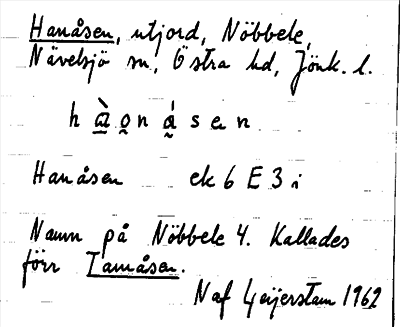 Hanåsen, utjord, Nöbbele,
Nävelsjö sn, Östra hd, Jönk. l.
h à o n á s e n
Hanåsen ek 6 E 3 i
Namn på Nöbbele 4. Kallades
förr Tamåsen.
N af Geijerstam 1962